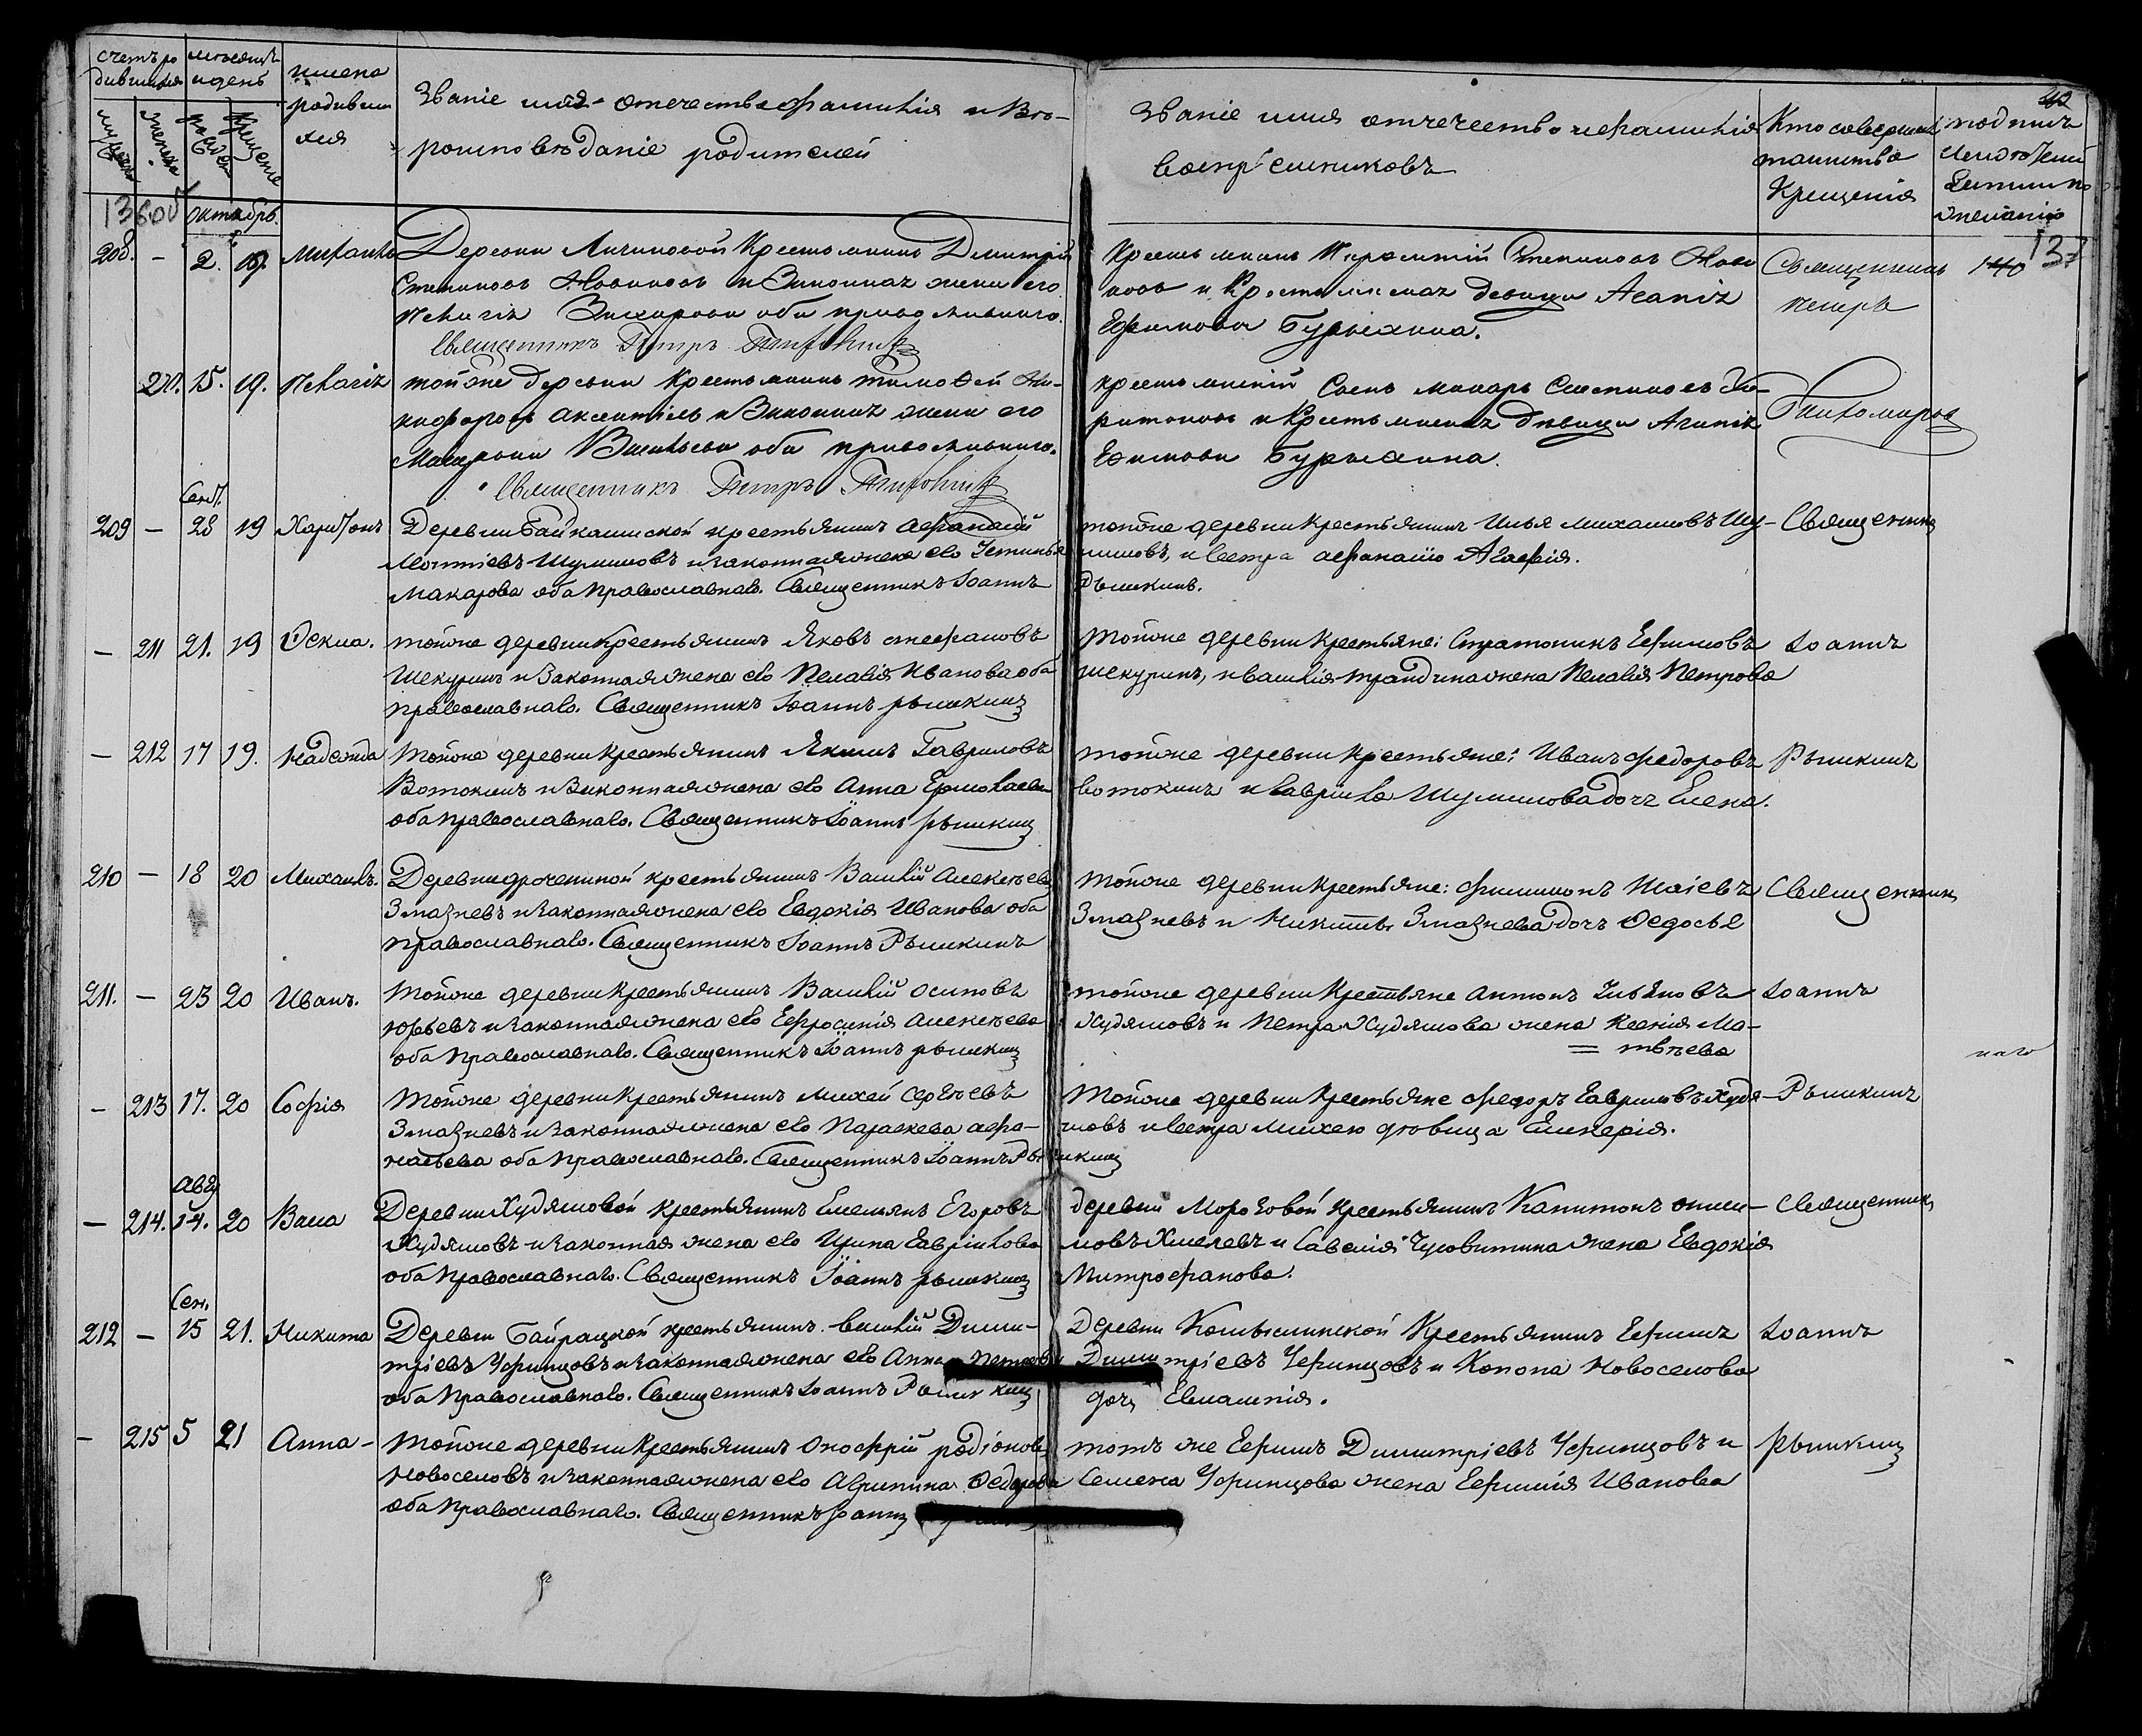 счетъ ро
дившихся
мѣсяцъ
и день
имена
родивши
хся
Званіе имя отечество фамилія и Вѣро-
роисповѣданіе родителей
Званіе имя отчечество и фамилія
воспріемниковъ
Кто совершал
таинство
Крещенія
подпись
40
136об
октябрь.
137
208. - 2. 19. Михаилъ
Деревни Личиновой Крестьянинъ Димитрій
Степановъ и Законная жена его
Пелагія Захарова оба православнаго.
Священникъ Петръ
Крестьянинъ Степановъ
и Крестьянская девица Агапія
Ефимова Бурыхина.
Священникъ
Петръ
140
210. 15. 19. Пелагія
тойже деревни Крестьянинъ Тимофей Ни-
кифоровъ и Законная жена его
Васильева оба православнаго.
Священникъ Петръ
крестьянскій Сынъ Макаръ
и Крестьянская дѣвица Агапія
Ефимова Бурыхина.
Сент.
209 - 28 19 Харитонъ
Деревни Байкашинской крестьянинъ Афанасій
Матвіевъ Шумиловъ и законная жена его Устинья
Макарова оба православнаго. Священникъ Іоаннъ
Рышкинъ.
тойже деревни крестьянинъ Илья Михаиловъ Шу-
миловъ, и сестра Афанасію Агафія.
Священникъ
- 211 21. 19 Ѳекла.
тойже деревни крестьянинъ Яковъ Стефановъ
Шекуринъ и Законная жена его Пелагія Иванова оба
православнаго. Священникъ Іоаннъ Рышкинъ
тойже деревни крестьяне: Стратоникъ Ефимовъ
Шекуринъ, и Василія жена Пелагія Петрова
Іоаннъ
- 212 17 19. Надежда
тойже деревни крестьянинъ Якимъ Гавриловъ
Вотокинъ и Законная жена его Анна Ермолаева
оба православнаго. Священникъ Іоаннъ Рышкинъ
тойже деревни крестьяне: Иванъ Федоровъ
Вотокинъ и Гаврила Шумилова дочь Елена.
Рышкинъ
210 - 18 20 Михаилъ.
Деревни крестьянинъ Василій Алексѣевъ
Змазневъ и законная жена его Евдокія Иванова оба
православнаго. Священникъ Іоаннъ Рышкинъ
тойже деревни крестьяне: Филимонъ Исаіевъ
Змазневъ и Никиты Змазнева дочь Ѳедосья
Священникъ
211. - 23 20 Иванъ.
тойже деревни крестьянинъ Василій Осиповъ
Юрьевъ и законная жена его Ефросинія Алексѣева
оба православнаго. Священникъ Іоаннъ Рышкинъ
тойже деревни Крестьяне Антонъ
Худяшовъ и Петра Худяшова жена Ксенія Ма-
= твѣева
Іоаннъ
наго
- 213 17. 20 Софія
тойже деревни крестьянинъ Михей Сергѣевъ
Змазневъ и законная жена его Параскева Афа-
насьева оба православнаго. Священникъ Іоаннъ Рышкинъ
тойже деревни Крестьяне Федоръ Гавриловъ Худя-
шовъ и сестра Михею дѣвица Гликерія.
Рышкинъ
Авг
- 214. 14. 20 Васса
Деревни Худяшовой крестьянинъ Емельянъ Егоровъ
Худяшовъ и законная жена его Ирина Гаврилова
оба православнаго. Священникъ Іоаннъ Рышкинъ
деревни Морозовой крестьянинъ Капитонъ Ониси-
мовъ Хмелевъ и Савелія Чусовитина жена Евдокія
Митрофанова.
Священникъ
Сен.
212 - 15 21. Никита
Деревни Байрацкой крестьянинъ Василій Дими-
тріевъ Уфинцовъ и законная жена его Анна Петрова
оба православнаго. Священникъ Іоаннъ Рышкинъ
Деревни Крестьянинъ Ефимъ
Димитріевъ Уфинцовъ и Конона Новоселова
дочь Евлампія.
Іоаннъ
- 215 5 21 Анна-
тойже деревни крестьянинъ Онофрій Родіоновъ
Новоселовъ и законная жена его Агрипина Ѳедорова
оба православнаго. Священникъ Іоаннъ
тотъ же Ефимъ Димитріевъ Уфинцовъ и
Семена Уфинцова жена Ефимія Иванова
Рышкинъ